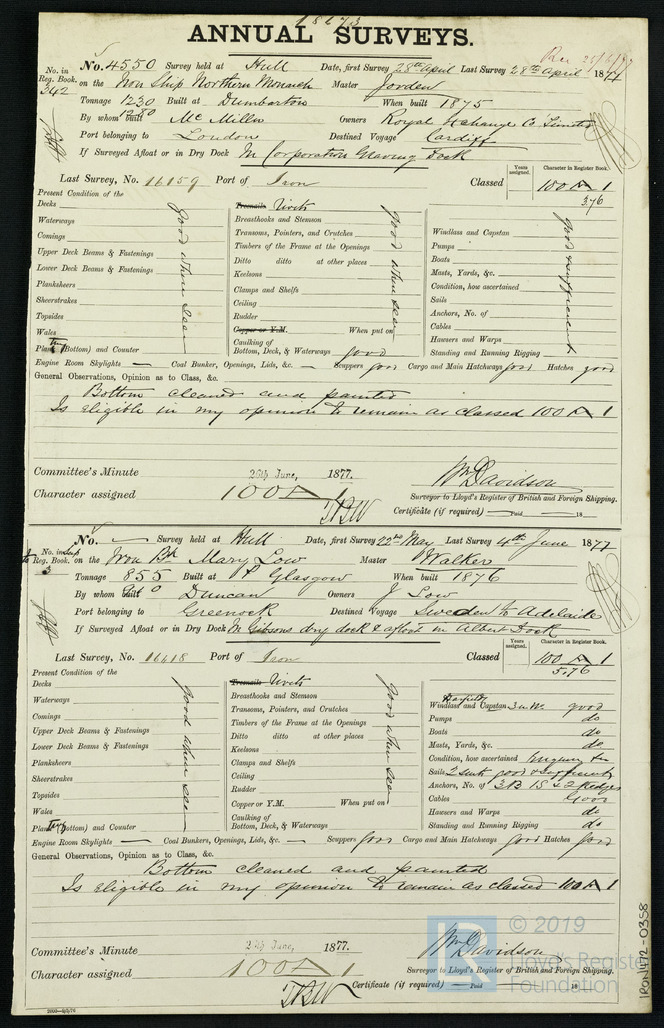 18673
ANNUAL SURVEYS.
Rec 25/6/77
No. in Reg. Book. 342
No. 4550 Survey held at Hull Date, first Survey 28th April Last Survey 28th April 1877
on the Iron Ship Northern Monarch Master Jorden
Tonnage 1230 Built at Dumbarton When built 1875
1280
By whom built McMillan Owners Royal Exchange Co Limited
Port belonging to London Destined Voyage Cardiff
If Surveyed Afloat or in Dry Dock In Corporation Graving Dock
Last Survey, No. 16159 Port of Iron Classed
Years assigned.
Character in Register Book.
100 A 1
3.76
Present Condition of the
Decks
Waterways
Comings
Upper Deck Beams & Fastenings
Lower Deck Beams & Fastenings
Planksheers
Sheerstrakes
Topsides
Wales
Plating (Bottom) and Counter
good when seen
Treenails Rivets
Breasthooks and Stemson
Transoms, Pointers, and Crutches
Timbers of the Frame at the Openings
Ditto ditto at other places
Keelsons
Clamps and Shelfs
Ceiling
Rudder
Copper or Y.M. When put on
Caulking of
Bottom, Deck, & Waterways good
good when seen
Windlass and Capstan
Pumps
Boats
Masts, Yards, &c.
Condition, how ascertained
Sails
Anchors, No. of
Cables
Hawsers and Warps
Standing and Running Rigging
good & sufficient
Engine Room Skylights — Coal Bunker, Openings, Lids, &c. — Scuppers good Cargo and Main Hatchways good Hatches good
General Observations, Opinion as to Class, &c.
Bottom cleaned and painted
Is eligible in my opinion to remain as classed 100 A 1
Committee's Minute 26th June, 1877.
Character assigned 100 A 1
Wm Davidson
Surveyor to Lloyd's Register of British and Foreign Shipping.
Certificate (if required) — Paid — 18
No. — Survey held at Hull Date, first Survey 22nd May Last Survey 4th June 1877
No. in Sup to Reg. Book. 3
on the Iron Bk Mary Low Master Walker
Tonnage 855 Built at P. Glasgow When built 1876
By whom built Duncan Owners J Low
Port belonging to Greenock Destined Voyage Sweden to Adelaide
If Surveyed Afloat or in Dry Dock In Gibsons dry dock & afloat in Albert Dock
Last Survey, No. 16418 Port of Iron Classed
Years assigned.
Character in Register Book.
100 A 1
5.76
Present Condition of the
Decks
Waterways
Comings
Upper Deck Beams & Fastenings
Lower Deck Beams & Fastenings
Planksheers
Sheerstrakes
Topsides
Wales
Plating (Bottom) and Counter
good when seen
Treenails Rivets
Breasthooks and Stemson
Transoms, Pointers, and Crutches
Timbers of the Frame at the Openings
Ditto ditto at other places
Keelsons
Clamps and Shelfs
Ceiling
Rudder
Copper or Y.M. When put on
Caulking of
Bottom, Deck, & Waterways
good when seen
Windlass and Capstan good
Pumps do
Boats do
Masts, Yards, &c. do
Condition, how ascertained
Sails 2 suits good & sufficient
Anchors, No. of 3B 1S & 2 Kedges
Cables Good
Hawsers and Warps do
Standing and Running Rigging do
Engine Room Skylights — Coal Bunkers, Openings, Lids, &c. — Scuppers good Cargo and Main Hatchways good Hatches good
General Observations, Opinion as to Class, &c.
Bottom cleaned and painted
Is eligible in my opinion to remain as classed 100 A 1
Committee's Minute 26th June, 1877.
Character assigned 100 A 1
Wm Davidson
Surveyor to Lloyd's Register of British and Foreign Shipping.
Certificate (if required) — Paid 18
© 2019
Lloyd's Register
Foundation
IRON472-0358